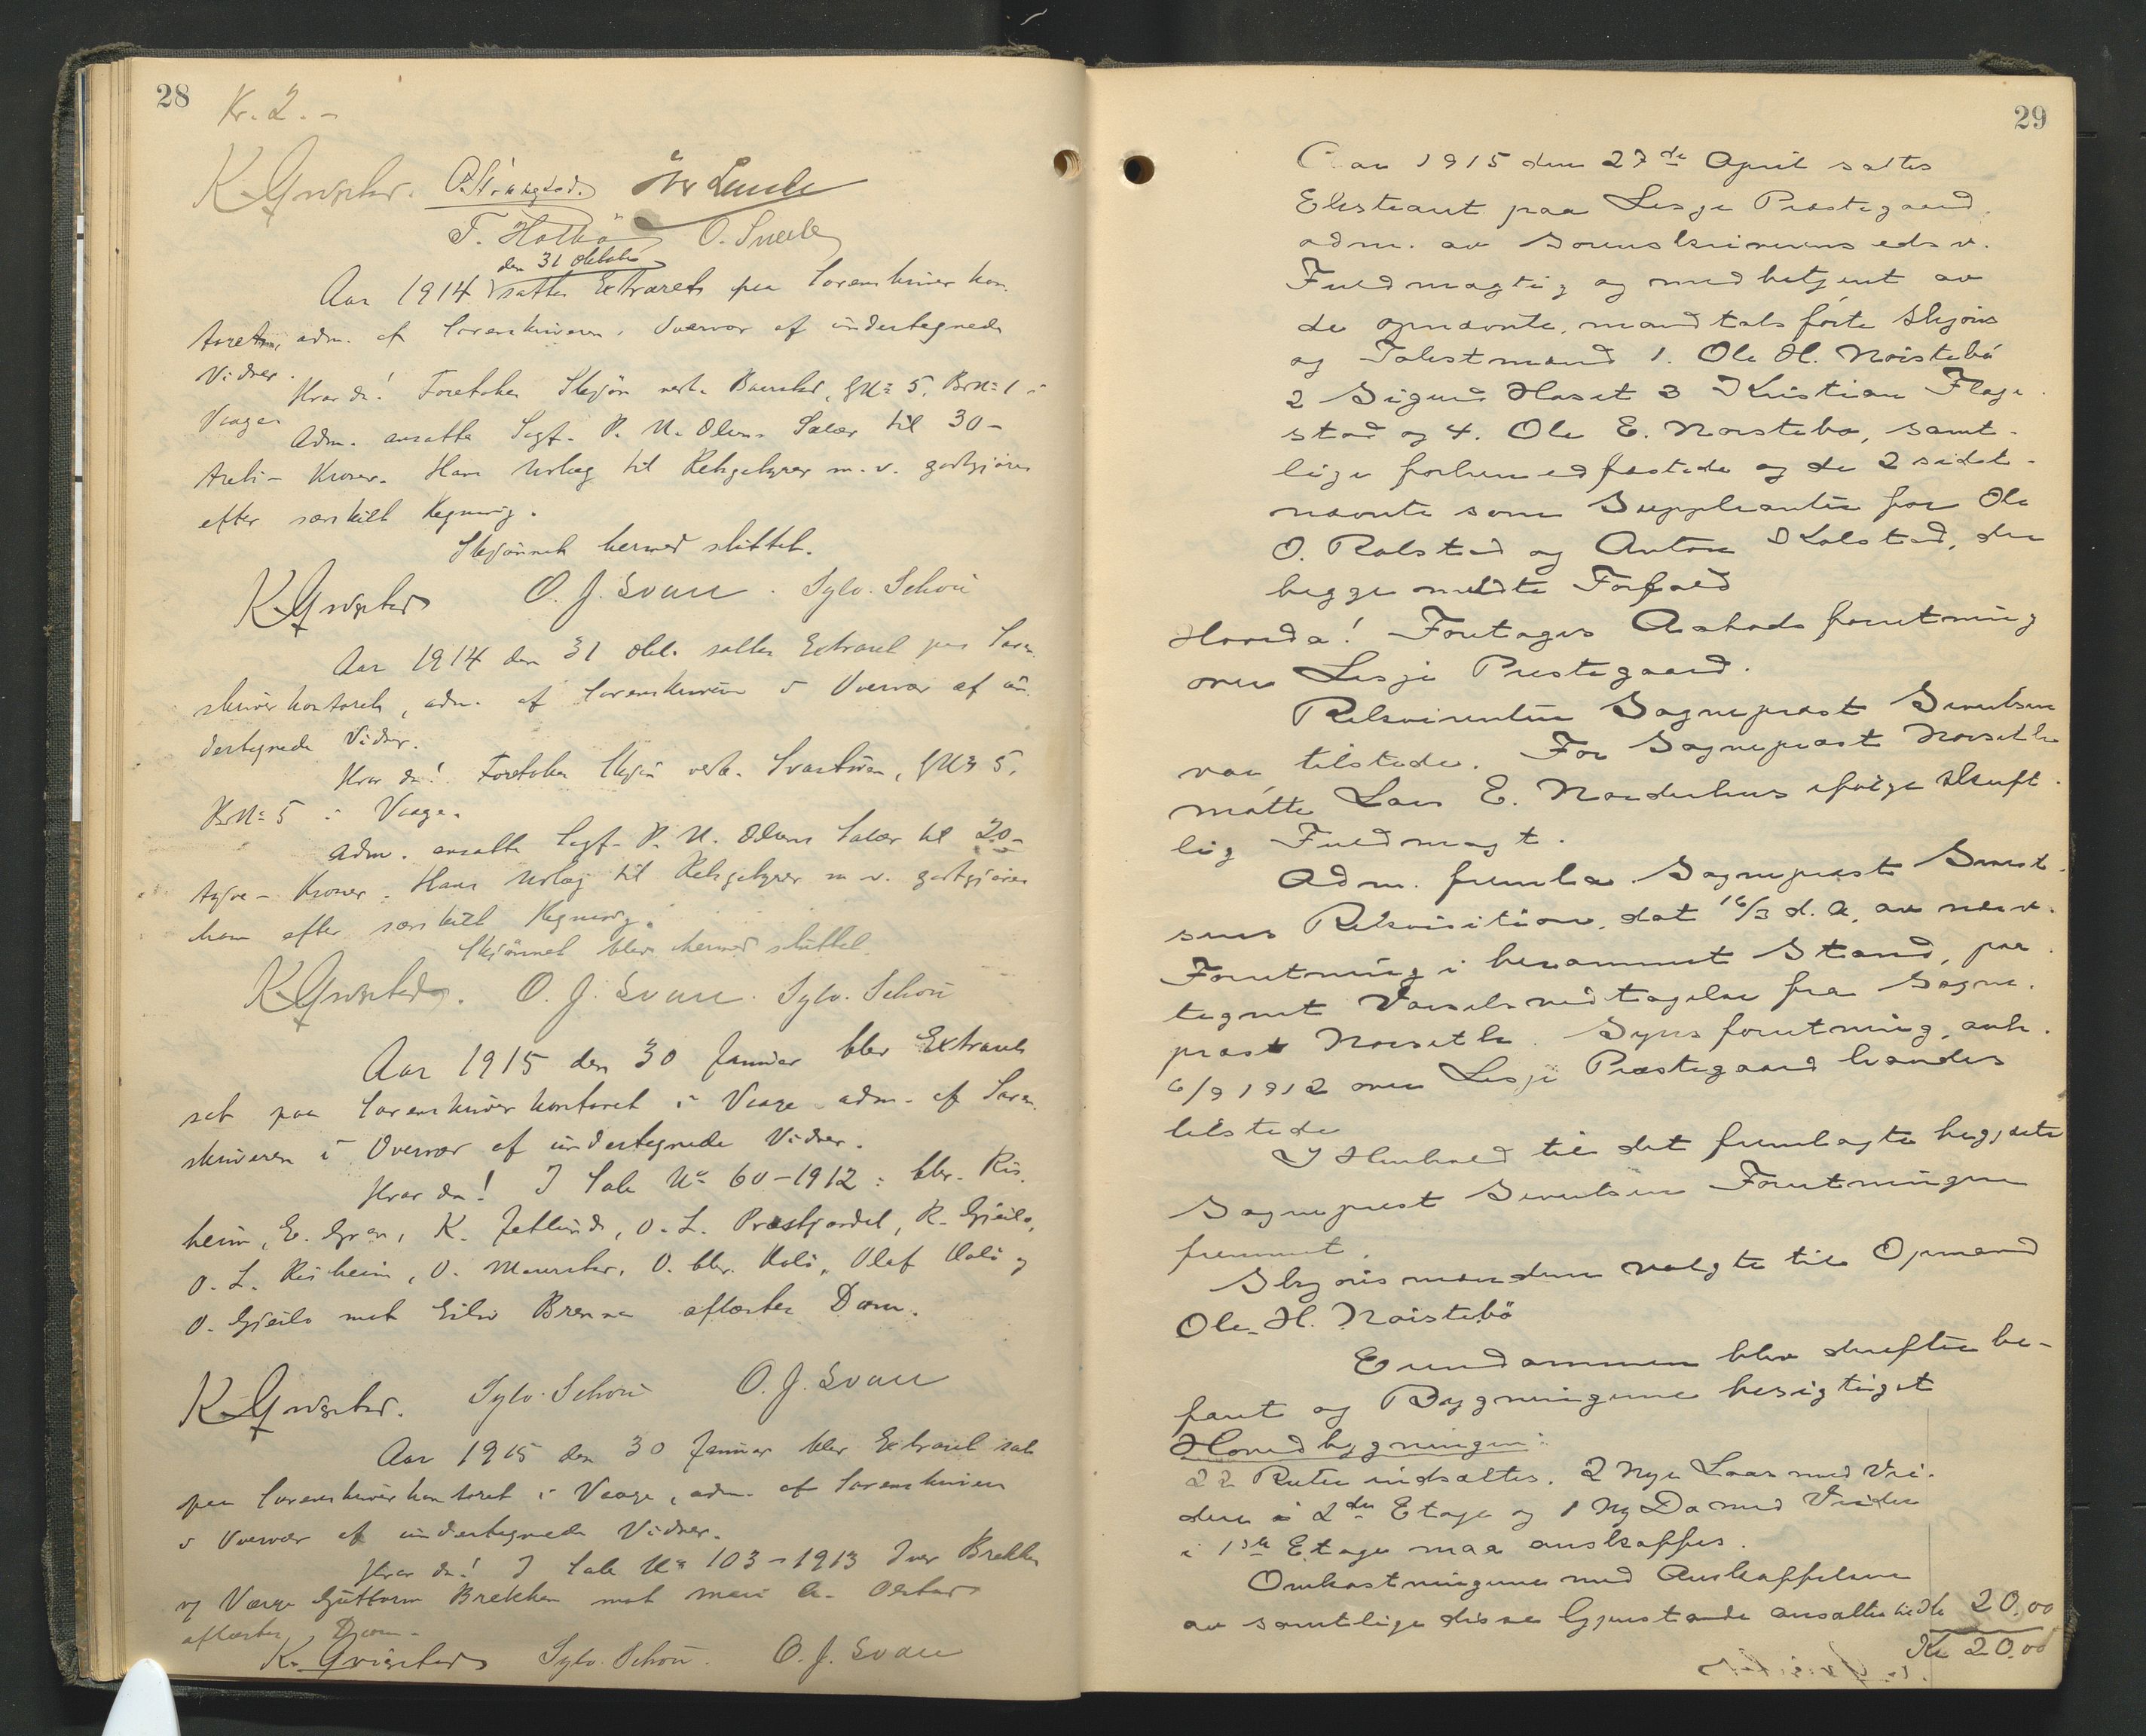 28
Kr. 2.-
K Qvigstad. O. Slaagstad. Iver Lunde
T. Holbö O. Svee
den 31 Oktober
Aar 1914 sattes Extraret paa Sorenskriverkon
toret, adm. af Sorenskriveren i Overvær af undertegnede
Vidner.
Hvorda! Foretokes Skjøn vedk. Baurstad, GN: 5, BrN: 1 i
Vaage.
Adm. ansatte Sagf. P. N. Olsens Salær til 30-
treti- Kroner. Hans Utlæg til Retsgebyrer m.v. godtgjøres
efter særskilt Regning.
Skjønnet hermed sluttet.
K Qvigstad O. J. Svare. Sylv. Schou
Aar 1914 den 31 Okt. sattes Extraret paa Soren
skriverkontoret, adm. af Sorenskriveren i Overvær af un
dertegnede Vidner.
Hvor da! Foretokes Skjøn vedk. GN: 5,
BrN: 5 i Vaage.
Adm. ansatte Sagf. P. N. Olsens Salær til 20-
tyve- Kroner. Hans Utlæg til Retsgebyrer m.v. godtgjøres
ham efter særskilt Regning.
Skjønnet blev hermed sluttet.
K Qvigstad. O. J. Svare. Sylv. Schou
Aar 1915 den 30 Januar blev Extraret
sat paa Sorenskriverkontoret i Vaage adm. af Soren
skriveren i Overvær af undertegnede Vidner.
Hvor da! I Sak No 60-1912: Chr. Ris
heim, E. Gran, K. Jetlund, O. L. Præstjordet, R. Gjeilo,
O. L. Risheim, O. O. Chr. Olaf og
O. Gjeilo mot Eiliv Brenna aflæstes Dom.
K Qvigstad. Sylv. Schou O. J. Svare
Aar 1915 den 30 Januar blev Extraret sat
paa Sorenskriverkontoret i Vaage, adm. af Sorenskriveren
i Overvær af undertegnede Vidner.
Hvor da! I Sak No 103-1913 Iver Brekken
og Værge Guttorm Brekken mot
aflæstes Dom.
K. Qvigstad Sylv. Schou. O. J. Svare
29
Aar 1915 den 27de April sattes
Ekstraret paa Lesje Prestegaard,
adm. av Sorenskriverens edsv.
Fuldmægtig og medbetjent av
de opnævnte, mandtalsførte Skjøns
og Takstmænd 1. Ole H. Nørstebö
2 Sigurd Haset 3 Kristian Flage
stad og 4. Ole E. Nørstebø, samt-
lige forhen edfæstede og de 2 sidst-
nævnte som Suppleanter for Ole
O. Rolstad og Anton Skolstad, der
begge meldte Forfald
Hvorda! Foretages Aabodsforretning
over Lesje Prestegaard.
Rekvirenten Sogneprest Sivertsen
var tilstede. For Sogneprest Norseth
møtte Lars E. Norderhus ifølge skrift-
lig Fuldmagt.
Adm. fremla Sogneprest Sivert-
sens Rekvisition, dat 16/3 d. A. av nærv.
Forretning i berammet Stand, paa-
tegnet Varselsvedtagelse fra Sogne-
prest Norseth. Synsforretning avh.
6/9 1912 over Lesje Præstegaard havdes
tilstede
I Henhold til det fremlagte begjærte
Sogneprest Sivertsen Forretningen
fremmet.
Skjønsmændene valgte til Opmand
Ole H. Nørstebö
Eiendommen blev derefter be-
faret og Bygningerne besigtiget
Hovedbygningen:
22 Ruter indsættes. 2 Nye Laas med Vri-
dere i 2den Etage og 1 Ny Do med Vrider
i 1ste Etage maa anskaffes.
Omkostningerne med Anskaffelsen
av samtlige disse Gjenstande ansattes til Kr 20.00
Kr 20.00